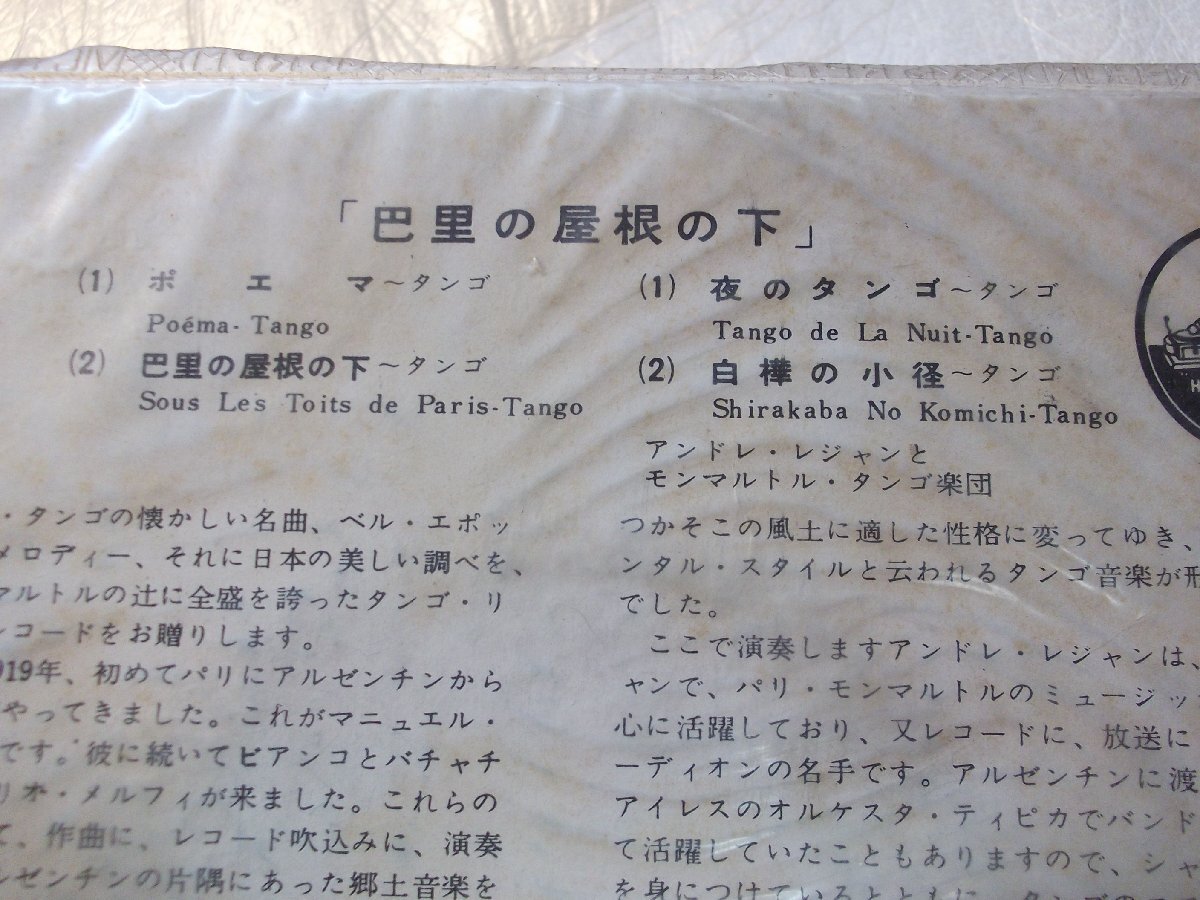 「巴里の屋根の下」
(1) ポエマ～タンゴ
Poéma-Tango
(2) 巴里の屋根の下～タンゴ
Sous Les Toits de Paris-Tango
(1) 夜のタンゴ～タンゴ
Tango de La Nuit-Tango
(2) 白樺の小径～タンゴ
Shirakaba No Komichi-Tango
アンドレ・レジャンと
モンマルトル・タンゴ楽団
・タンゴの懐かしい名曲、ベル・エポッ
メロディー、それに日本の美しい調べを、
マルトルの辻に全盛を誇ったタンゴ・リ
レコードをお贈りします。
919年、初めてパリにアルゼンチンから
やってきました。これがマニュエル・
です。彼に続いてビアンコとバチャチ
リオ・メルフィが来ました。これらの
て、作曲に、レコード吹込みに、演奏
ルゼンチンの片隅にあった郷土音楽を
つかそこの風土に適した性格に変ってゆき、
ンタル・スタイルと云われるタンゴ音楽が形
でした。
ここで演奏しますアンドレ・レジャンは、
ャンで、パリ・モンマルトルのミュージッ
心に活躍しており、又レコードに、放送に
ーディオンの名手です。アルゼンチンに渡
アイレスのオルケスタ・ティピカでバンド
て活躍していたこともありますので、シャ
を身につけているとともに、タンゴの